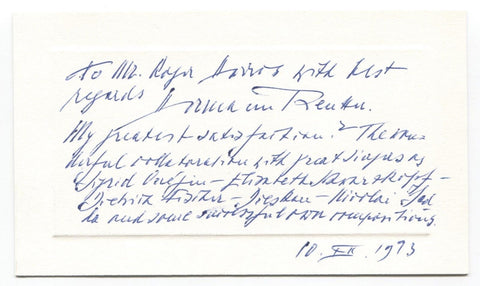 To Mr. Roger Davros with best
regards Hermann Reutter.
My greatest satisfaction? The won-
derful collaboration with great singers as
Sigrid Onégin – Elisabeth Schwarzkopf –
Dietrich Fischer-Dieskau – Nicolai Ged-
da and some successful own compositions.
10. XII. 1973